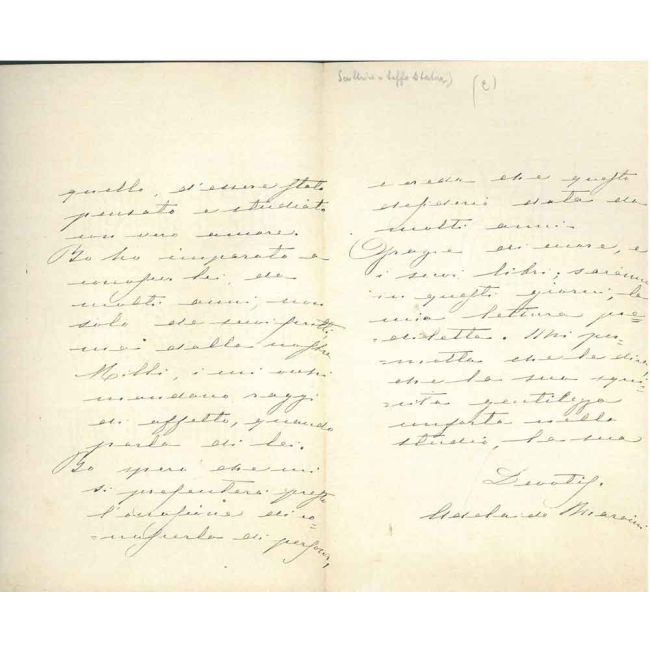 quello, d'essere stato
pensato e studiato
con vero amore.
Io ho imparato a
conoscerlei, da
molti anni, non
solo da suoi scritti,
ma dalla nostra
Milli, i cui occhi
mandano raggi
di affetto, quando
parla di lei.
Io spero che mi
si presenterà presto
l'occasione di co=
=noscerla di persona,
e creda che questo
desiderio data da
molti anni.
Grazie di cuore, e
i suoi libri, saranno
in questi giorni, la
mia lettura pre=
diletta. Mi per=
=metta che le dica,
che la sua squi=
=sita gentilezza
conforta nello
studio, la sua
Devotis.
Adelaide Maraini
(2)